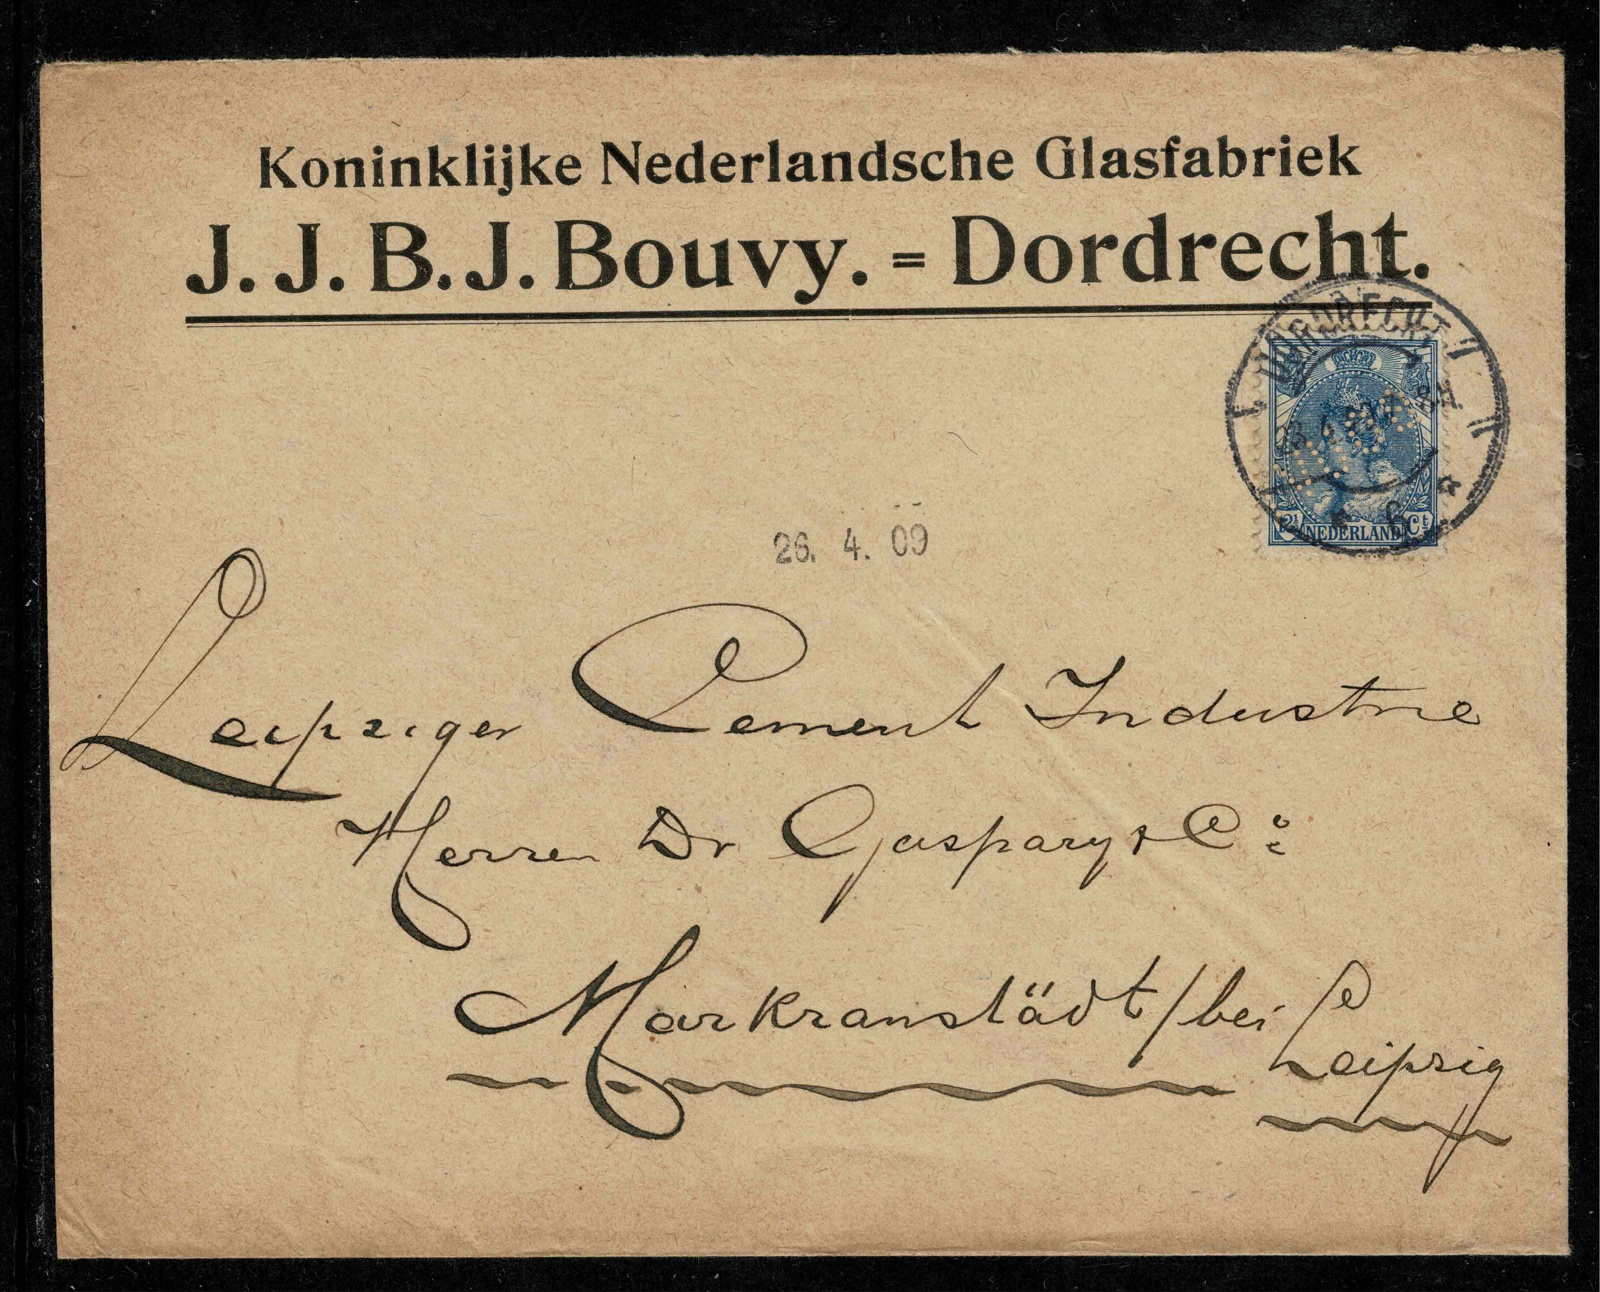 Koninklijke Nederlandsche Glasfabriek
J. J. B. J. Bouvy. = Dordrecht.
DORDRECHT
NEDERLAND
26. 4. 09
Leipziger Cement Industrie
Herren Dr Gaspary & Co
Markranstädt / bei Leipzig